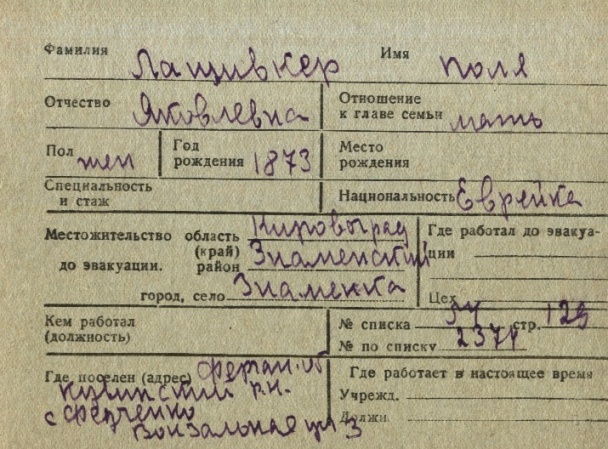 Фамилия Лащивкер Имя Поля
Отчество Яковлевна Отношение к главе семьи мать
Пол жен Год рождения 1873 Место рождения
Специальность и стаж Национальность Еврейка
Местожительство область Кировоград Где работал до эвакуа-
(край) ции
до эвакуации. район Знаменский
город, село Знаменка Цех
Кем работал (должность) № списка 54 стр. 129
№ по списку 2374
Где поселен (адрес) Ферган. об Где работает в настоящее время
Кувинский р.н. Учрежд.
с Федченко Должн.
Вокзальная ул 3